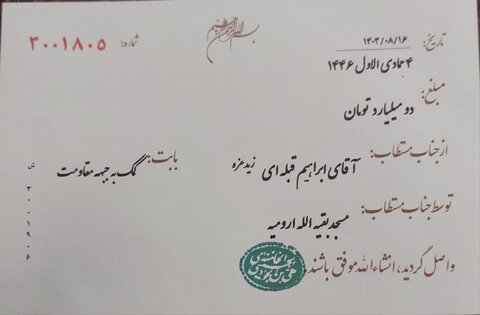 بسم الله الرحمن الرحیم
تاریخ: ۱۴۰۳/۰۸/۱۶
شماره: ۳۰۰۱۸۰۵
۴ جمادی الاول ۱۴۴۶
مبلغ:
دو میلیارد تومان
از جناب مستطاب:
آقای ابراهیم قبله ای زید عزه
بابت: کمک به جبهه مقاومت
توسط جناب مستطاب:
مسجد بقیه الله ارومیه
واصل گردید، انشاءالله موفق باشند.
ش ۳۰۰۱۹۰۶